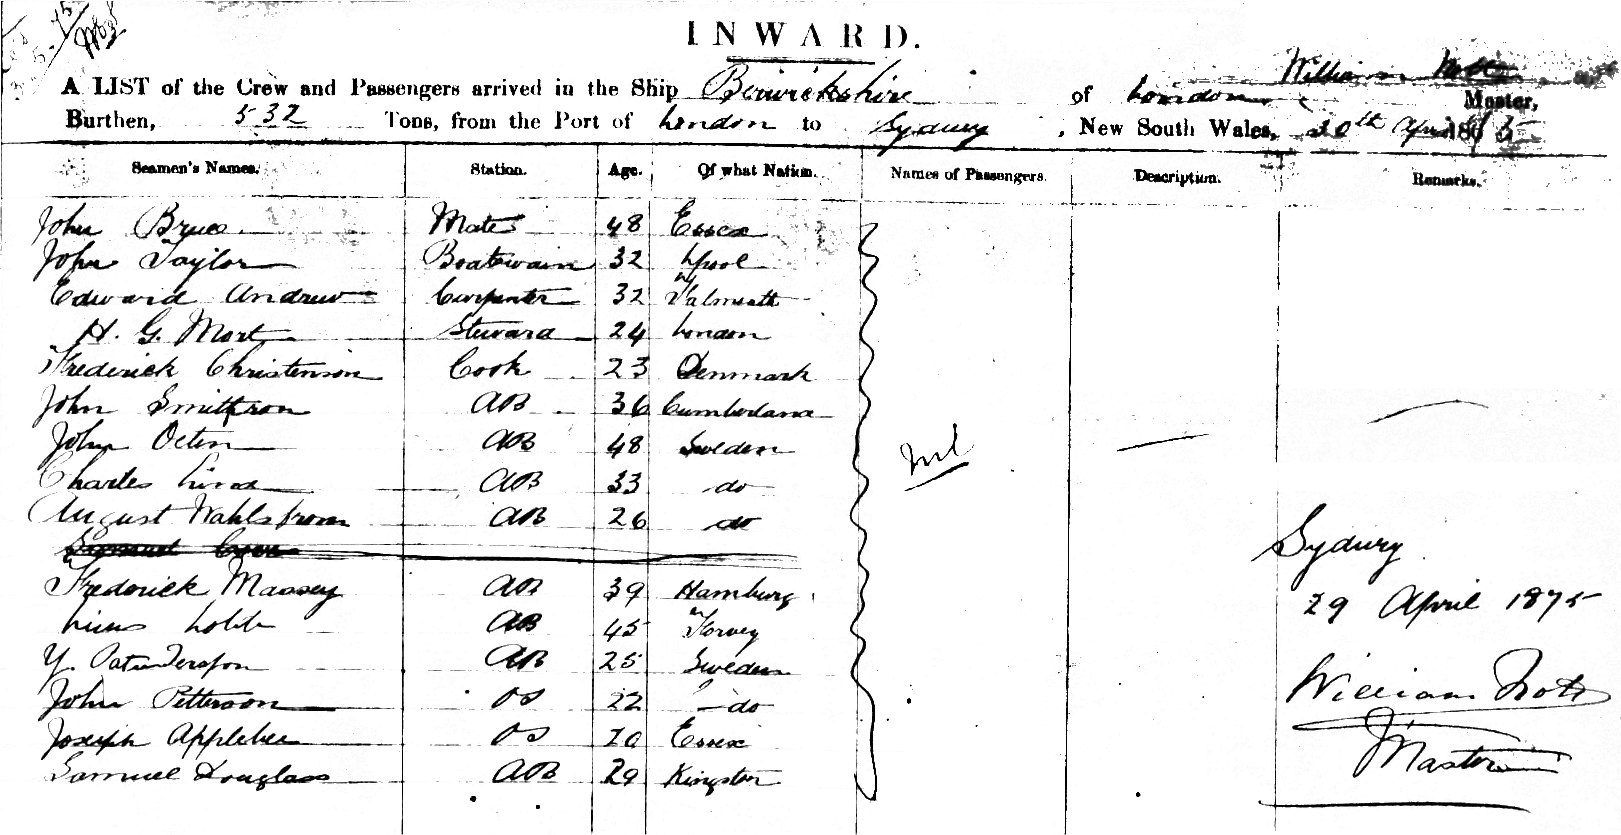 INWARD.
A LIST of the Crew and Passengers arrived in the Ship Berwickshire of London, William Master,
Burthen, 532 Tons, from the Port of London to Sydney, New South Wales, April 1875
Seamen's Names. Station. Age. Of what Nation. Names of Passengers. Description. Remarks.
John Bruce Mate 48 Essex
John Taylor Boatswain 32 Lpool
Edward Andrew Carpenter 32
H. G. Mort Steward 24 London
Frederick Christenson Cook 23 Denmark
John AB 36 Cumberland
John AB 48 Sweden
Nil
Charles Lind AB 33 do
August Wahlstrom AB 26 do
Sydney
Frederick Massey AB 39 Hamburg
29 April 1875
AB 45
AB 25 Sweden
William
John Petterson OS 22 do
Joseph Applebee OS 20 Essex
Master
Samuel Douglass AB 29 Kingston